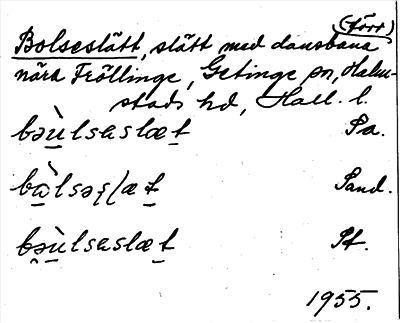 (förr)
Bolseslätt, slätt med dansbana
nära Fröllinge, Getinge sn, Halm-
stads hd, Hall. l.
bəùlsɐslæt Pa.
bàlsəslæt Sand.
bəùlsɐslæt Pf.
1955.